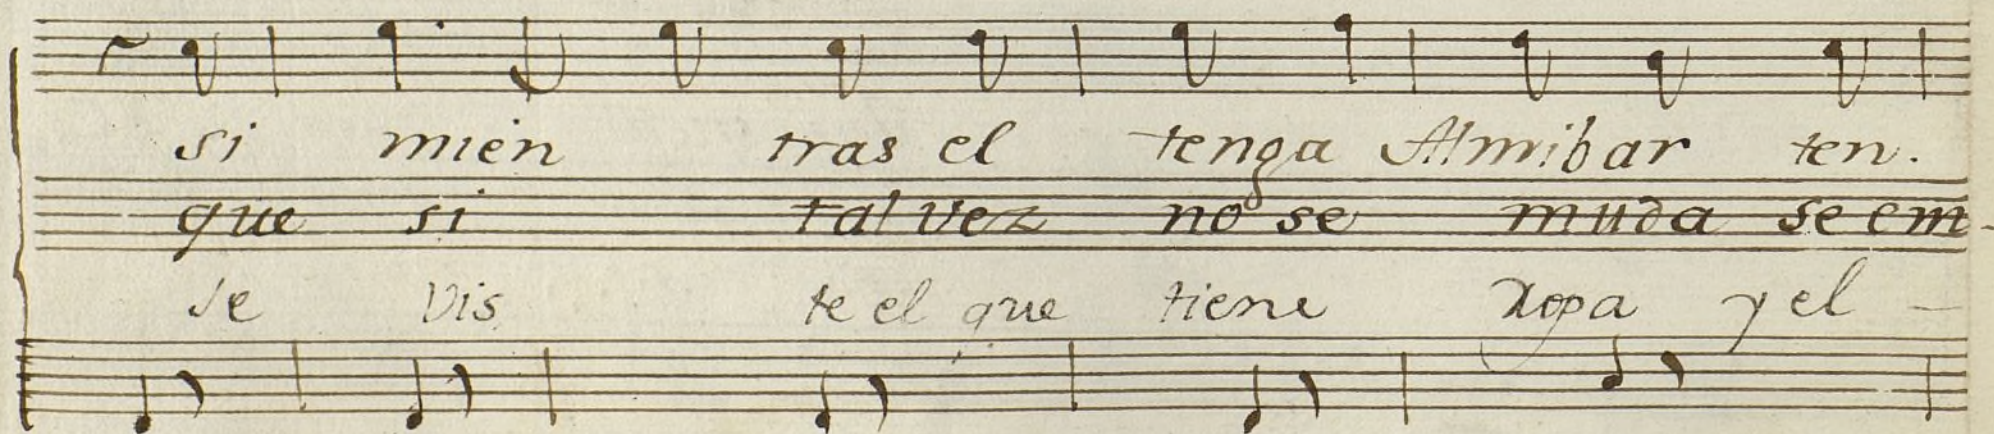 si mien tras el tenga Almibar ten.
que si tal vez no se muda se em-
se vis te el que tiene ropa y el -